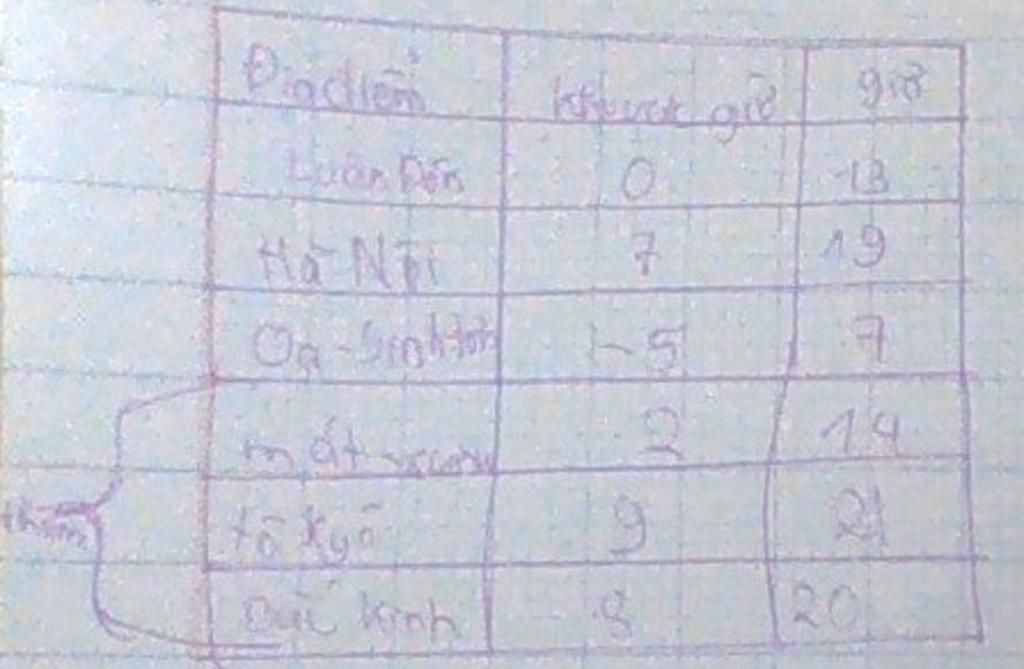 Địa điểm Khu vực giờ giờ
Luân Đôn 0 13
Hà Nội 7 19
Oa-sinh-tơn -5 7
mát-xcơva 2 14
thêm
tô kyô 9 21
Bắc kinh 8 20